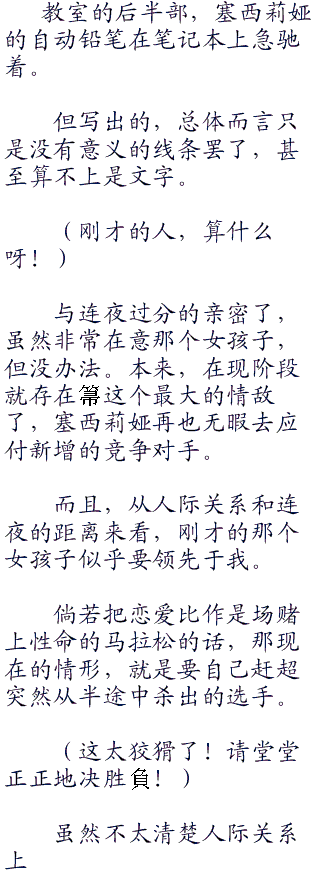 教室的后半部，塞西莉娅
的自动铅笔在笔记本上急驰
着。
但写出的，总体而言只
是没有意义的线条罢了，甚
至算不上是文字。
（刚才的人，算什么
呀！）
与连夜过分的亲密了，
虽然非常在意那个女孩子，
但没办法。本来，在现阶段
就存在箒这个最大的情敌
了，塞西莉娅再也无暇去应
付新增的竞争对手。
而且，从人际关系和连
夜的距离来看，刚才的那个
女孩子似乎要领先于我。
倘若把恋爱比作是场赌
上性命的马拉松的话，那现
在的情形，就是要自己赶超
突然从半途中杀出的选手。
（这太狡猾了！请堂堂
正正地决胜負！）
虽然不太清楚人际关系
上